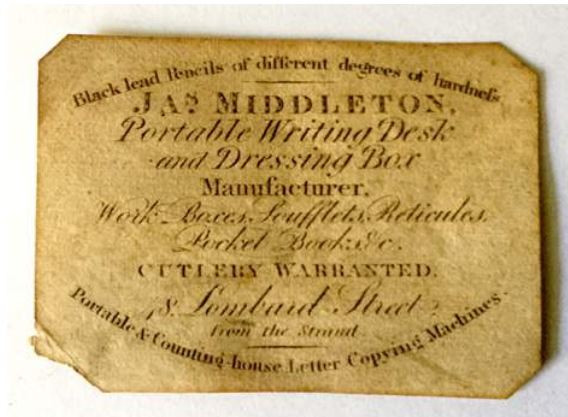 Black lead Pencils of different degrees of hardneſs.
JAS. MIDDLETON,
Portable Writing Desk
and Dressing Box
Manufacturer,
Work Boxes, Soufflets, Reticules,
Pocket Books &c.
CUTLERY WARRANTED.
8. Lombard Street
from the Strand.
Portable & Counting-house Letter Copying Machines.